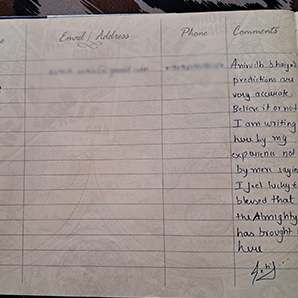 Email / Address
Phone
Comments
Anirudh bhaiya
predictions are
very accurate.
Believe it or not
I am writing
here by my
experience not
by mere saying
I feel lucky &
blessed that
the Almighty
has brought
here